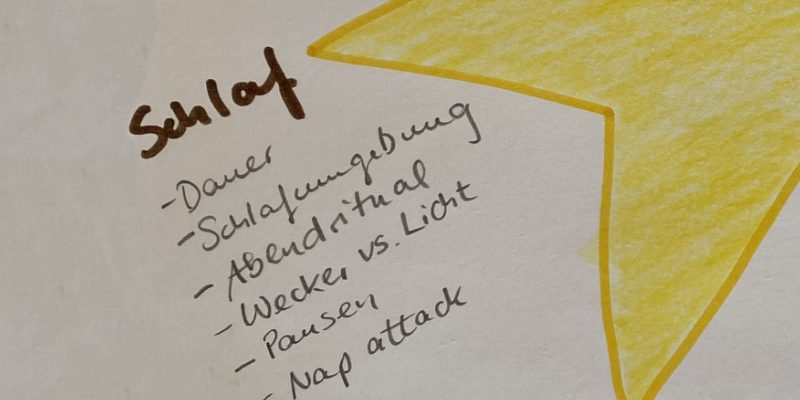 Schlaf
- Dauer
- Schlafumgebung
- Abendritual
- Wecker vs. Licht
- Pausen
- Nap attack